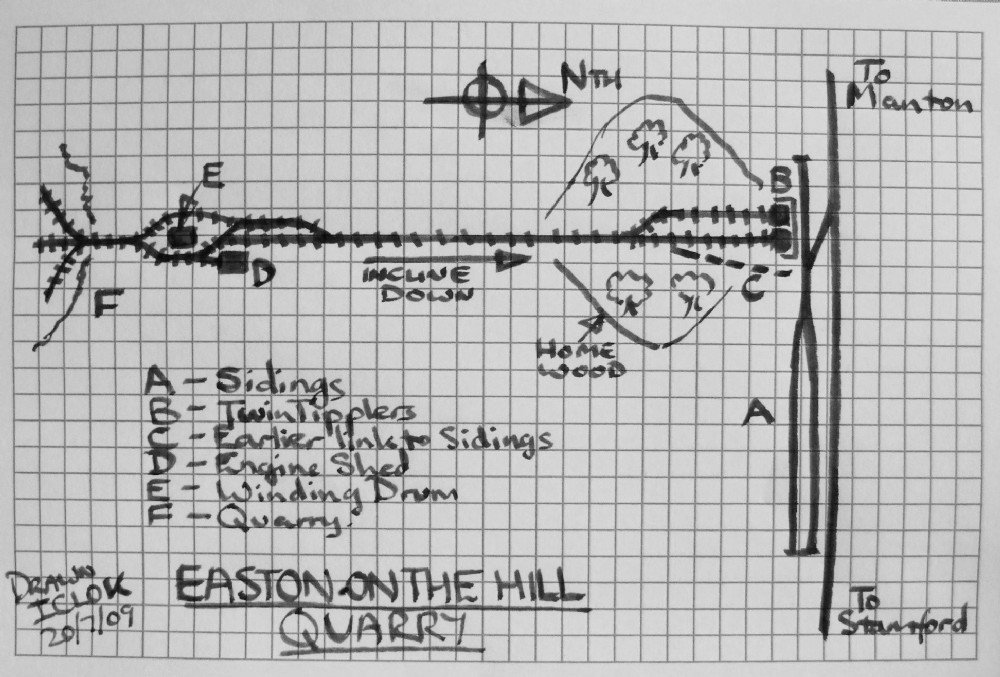 NTH
To
Manton
E
B
D
INCLINE
DOWN
C
F
HOME
WOOD
A
A - Sidings
B - Twin Tipplers
C - Earlier link to Sidings
D - Engine Shed
E - Winding Drum
F - Quarry.
DRAWN
20/7/09
EASTON-ON THE HILL
QUARRY
To
Stamford